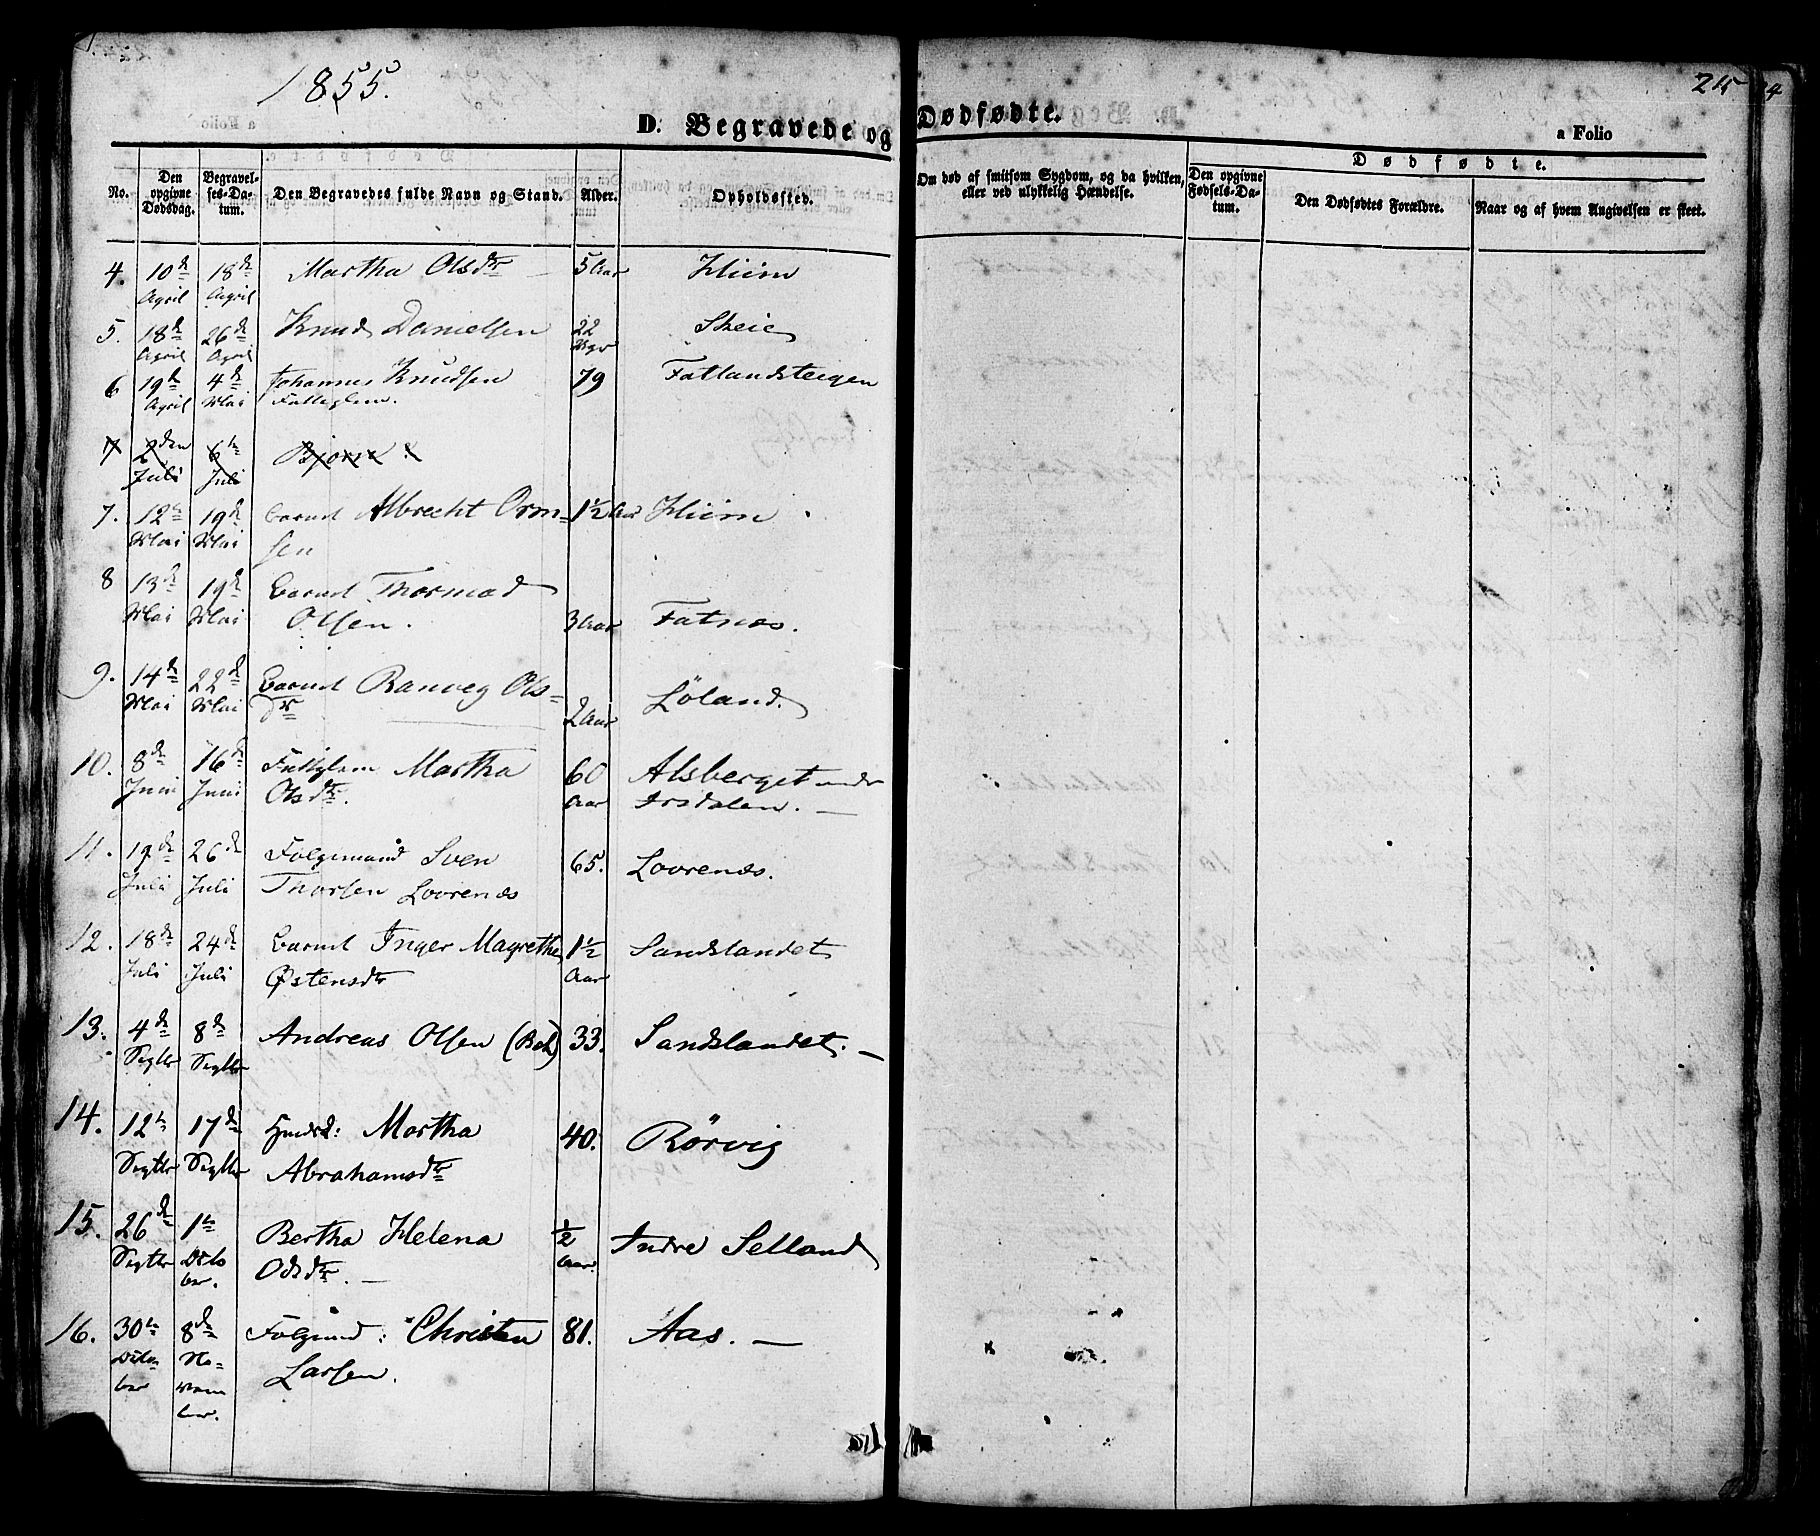 1855.
215
D. Begravede og Dødfødte.
a Folio
No.
Den opgivne Dødsdag.
Begravelses-Datum.
Den Begravedes fulde Navn og Stand.
Alder.
Opholdssted.
Om død af smitsom Sygdom, og da hvilken, eller ved ulykkelig Hændelse.
Dødfødte.
Den opgivne Fødsels-Datum.
Den Dødfødtes Forældre.
Naar og af hvem Angivelsen er skeet.
4. 10de April 18de April Martha Olsdtr 5 Aar Hiim
5. 18de April 26de April Knud Danielsen 22 Skeie
6 19de April 4de Mai Johannes Knudsen 79 Fatlandsteigen
Fattiglem.
7 2den Juli 6te Juli Bjørn
7. 12te Mai 19de Mai barnet Albrecht Orm- 1½ Aar Hiim
sen
8 13de Mai 19de Mai barnet Thormod
Olsen. 3 Aar Fatnæs.
9. 14de Mai 22de Mai barnet Ranveg Ols-
dtr 2 Aar Løland.
10. 8de Juni 16de Juni Fattiglem Martha 60 Aar Alsberget under
Olsdtr. Irsdalen.
11. 19de Juli 26de Juli Følgemand Sven 65. Lovrenæs.
Thorsen Lovrenæs
12. 18de Juli 24de Juli barnet Inger Magrethe 1½ Aar Sandslandet
Østensdtr
13. 4de Septbr 8de Septbr Andreas Olsen 33. Sandslandet.
14. 12te Septbr 17de Septbr Huusk: Martha 40. Rörvig
Abrahamsdtr
15. 26de Septbr 1te October. Bertha Helena ½ Aar Indre Selland
Odsdtr.
16. 30te October 8de November. Følgmd: Christen 81. Aas.
Larsen.